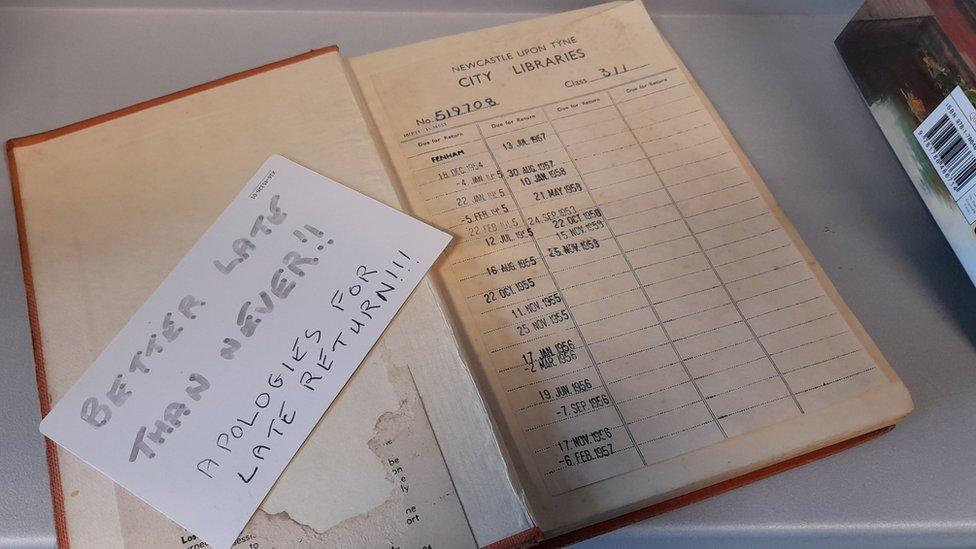 BETTER LATE
THAN NEVER!!
APOLOGIES FOR
LATE RETURN!!!
NEWCASTLE UPON TYNE
CITY LIBRARIES
No. 519708 Class 311
Due for Return
FENHAM
18. DEC. 1954
-4. JAN.
22. JAN.
-5. FEB.
22. FEB.
12. JUL.
16. AUG. 1955
22. OCT. 1955
11. NOV. 1955
25. NOV. 1955
17. JAN. 1956
-2. MAR. 1956
19. JUN. 1956
-7. SEP. 1956
17. NOV. 1956
-6. FEB. 1957
Due for Return
13. JUL. 1957
30. AUG. 1957
10. JAN. 1958
21. MAY 1958
24. SEP. 1953
22 OCT 1958
15. NOV. 1958
25. NOV. 1958
Due for Return
Due for Return
be
on
ne
ort
Los
ISBN